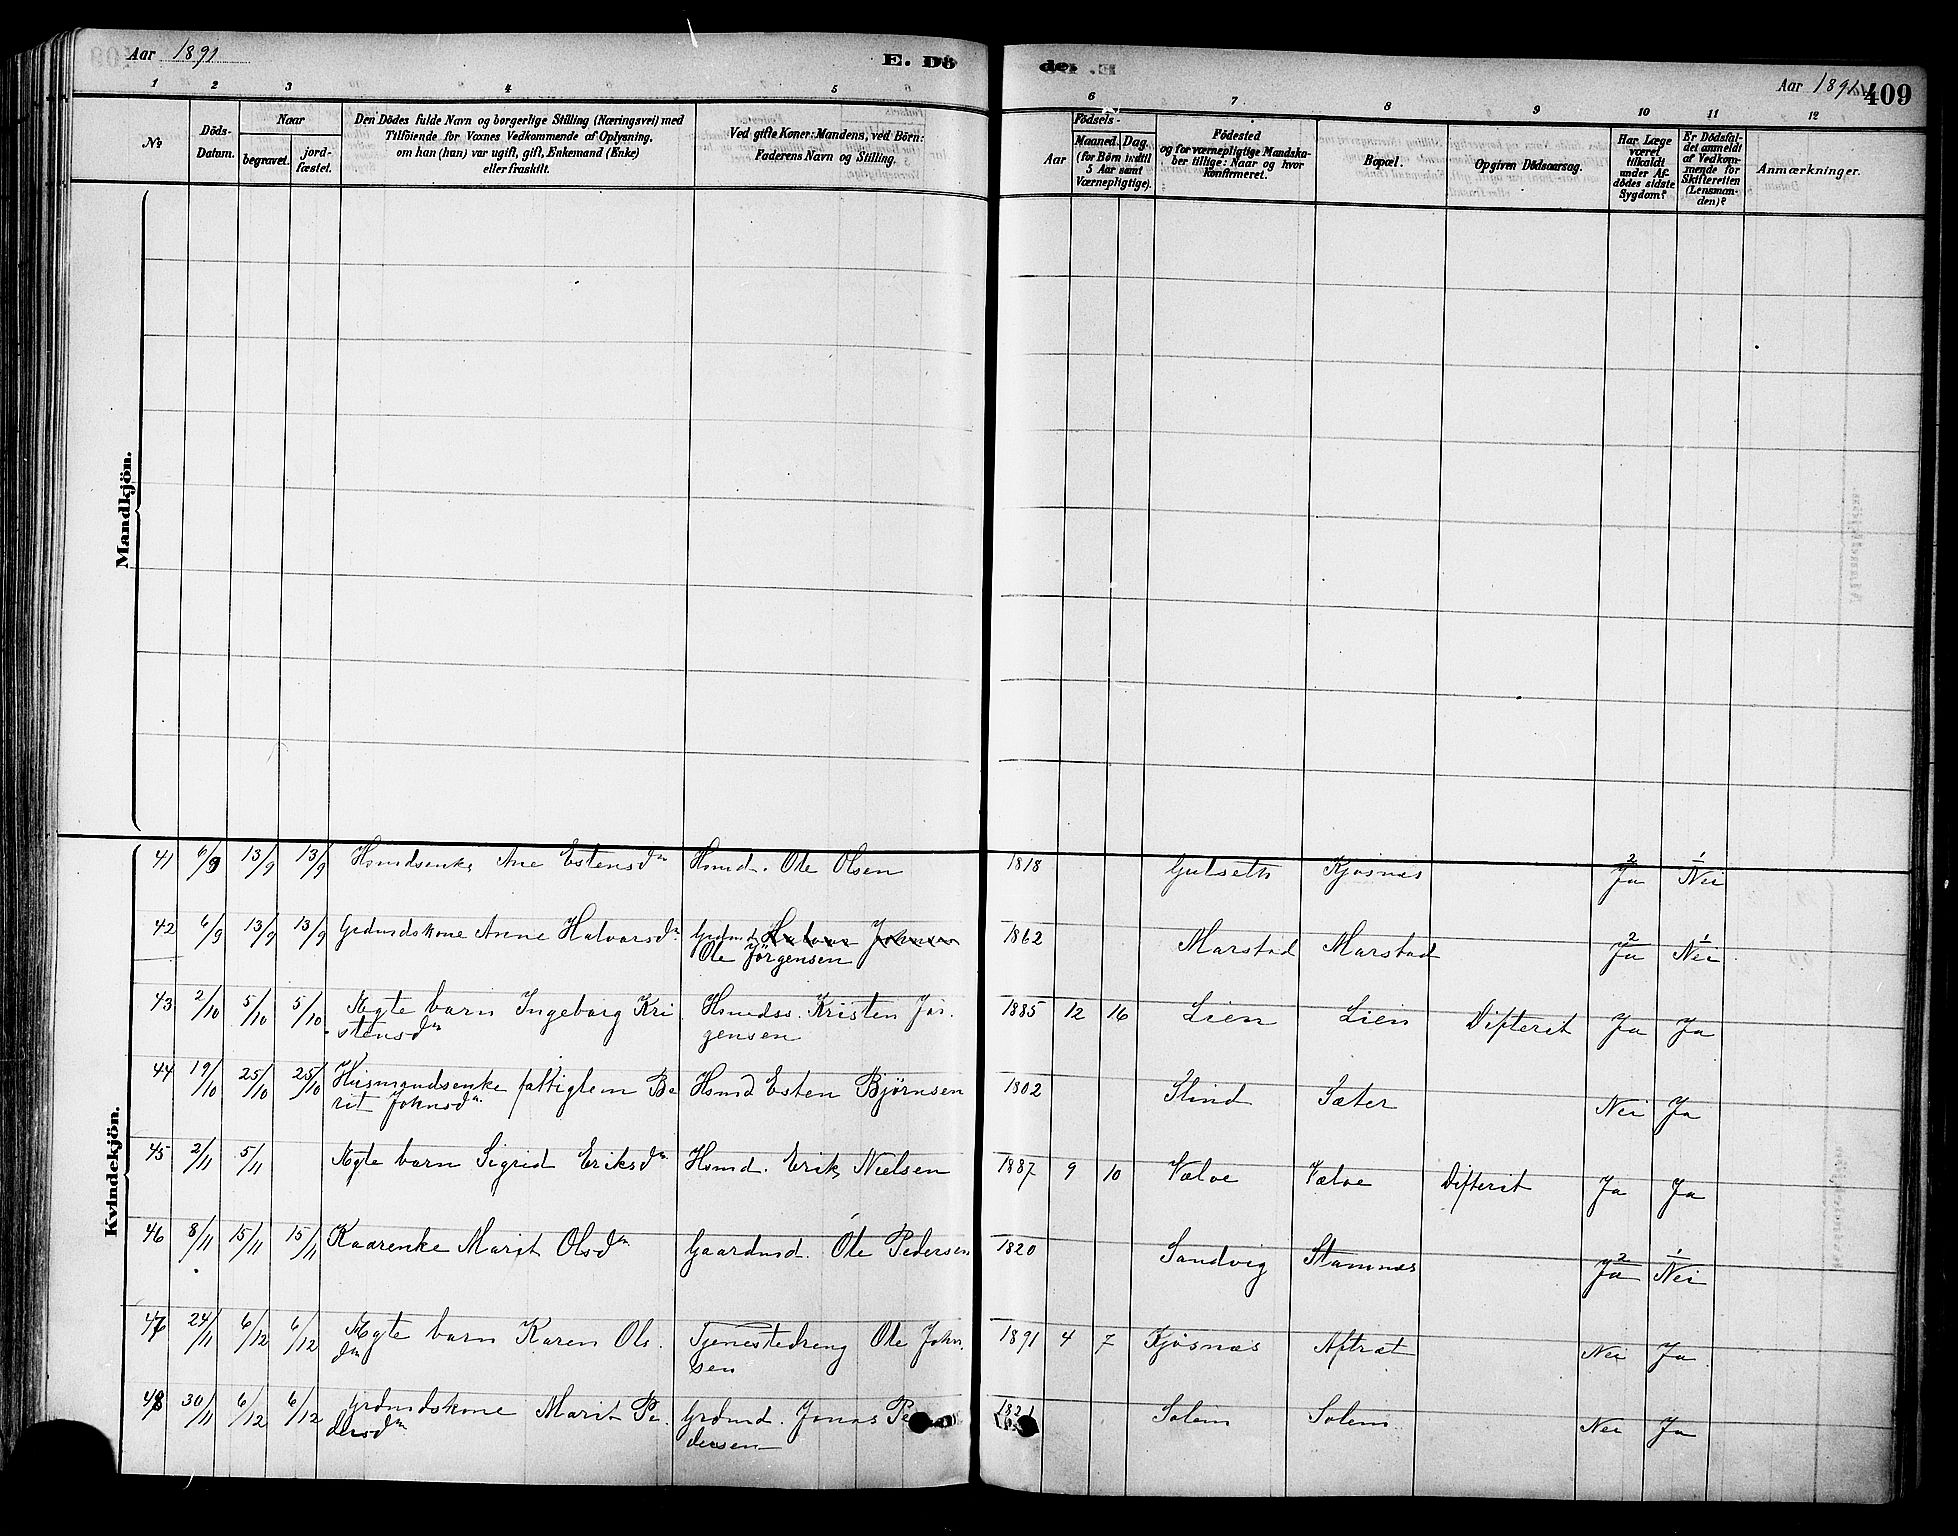 Aar 1891
E. Dö
der. E.
Aar 1891.
409
1 2 3 4 5 6 7 8 9 10 11 12
No
Döds-
Datum.
Naar
begravet.
jord-
fæstet.
Den Dödes fulde Navn og borgerlige Stilling (Næringsvei) med
Tilföiende for Voxnes Vedkommende af Oplysning,
om han (hun) var ugift, gift, Enkemand (Enke)
eller fraskilt.
Ved gifte Koner: Mandens, ved Börn:
Faderens Navn og Stilling.
Födsels-
Aar
Maaned.
Dag.
(for Börn indtil
5 Aar samt
Værnepligtige).
Födested
og for værnepligtige Mandska-
ber tillige: Naar og hvor
konfirmeret.
Bopæl.
Opgiven Dödsaarsag.
Har Læge
været
tilkaldt
under Af-
dödes sidste
Sygdom?
Er Dödsfal-
det anmeldt
af Vedkom-
mende for
Skifteretten
(Lensman-
den)?
Anmærkninger.
Mandkjön.
Kvindekjön.
41 6/9 13/9 13/9 Hsmdsenke Ane Estensdr Hsmd. Ole Olsen 1818 Gulseth Kjøsnes 2 Ja 1 Nei
42 6/9 13/9 13/9 Grdmdskone Anne Halvorsdr Grdmd. Halvor Johnsen 1862 Marstad Marstad 2 Ja 1 Nei
Ole Jörgensen
43 2/10 5/10 5/10 Ægte barn Ingeborg Kri Hsmdss. Kristen Jör. 1885 12 16 Lien Lien Difterit Ja Ja
stensdr gensen
44 19/10 25/10 25/10 Husmandsenke fattiglem Be Hsmd Esten Bjørnsen 1802 Slind Sæter Nei Ja
rit Johnsdr
45 2/11 5/11 Ægte barn Sigrid Eriksdr Hsmd. Erik Nielsen 1887 9 10 Vælve Vælve Difterit Ja Ja
46 8/11 15/11 15/11 Kaarenke Marit Olsdr Gaardmd. Ole Pedersen 1820 Sandvig Stamnes 2 Ja 1 Nei
47 24/11 6/12 6/12 Ægte barn Karen Ols. Tjenestedreng Ole John. 1891 4 7 Kjøsnæs Aftræt Nei Ja
dr sen
48 30/11 6/12 6/12 Grdmdskone Marit Pe. Grdmd. Jonas Pe 1821 Solem Solem Nei Ja
dersdr dersen